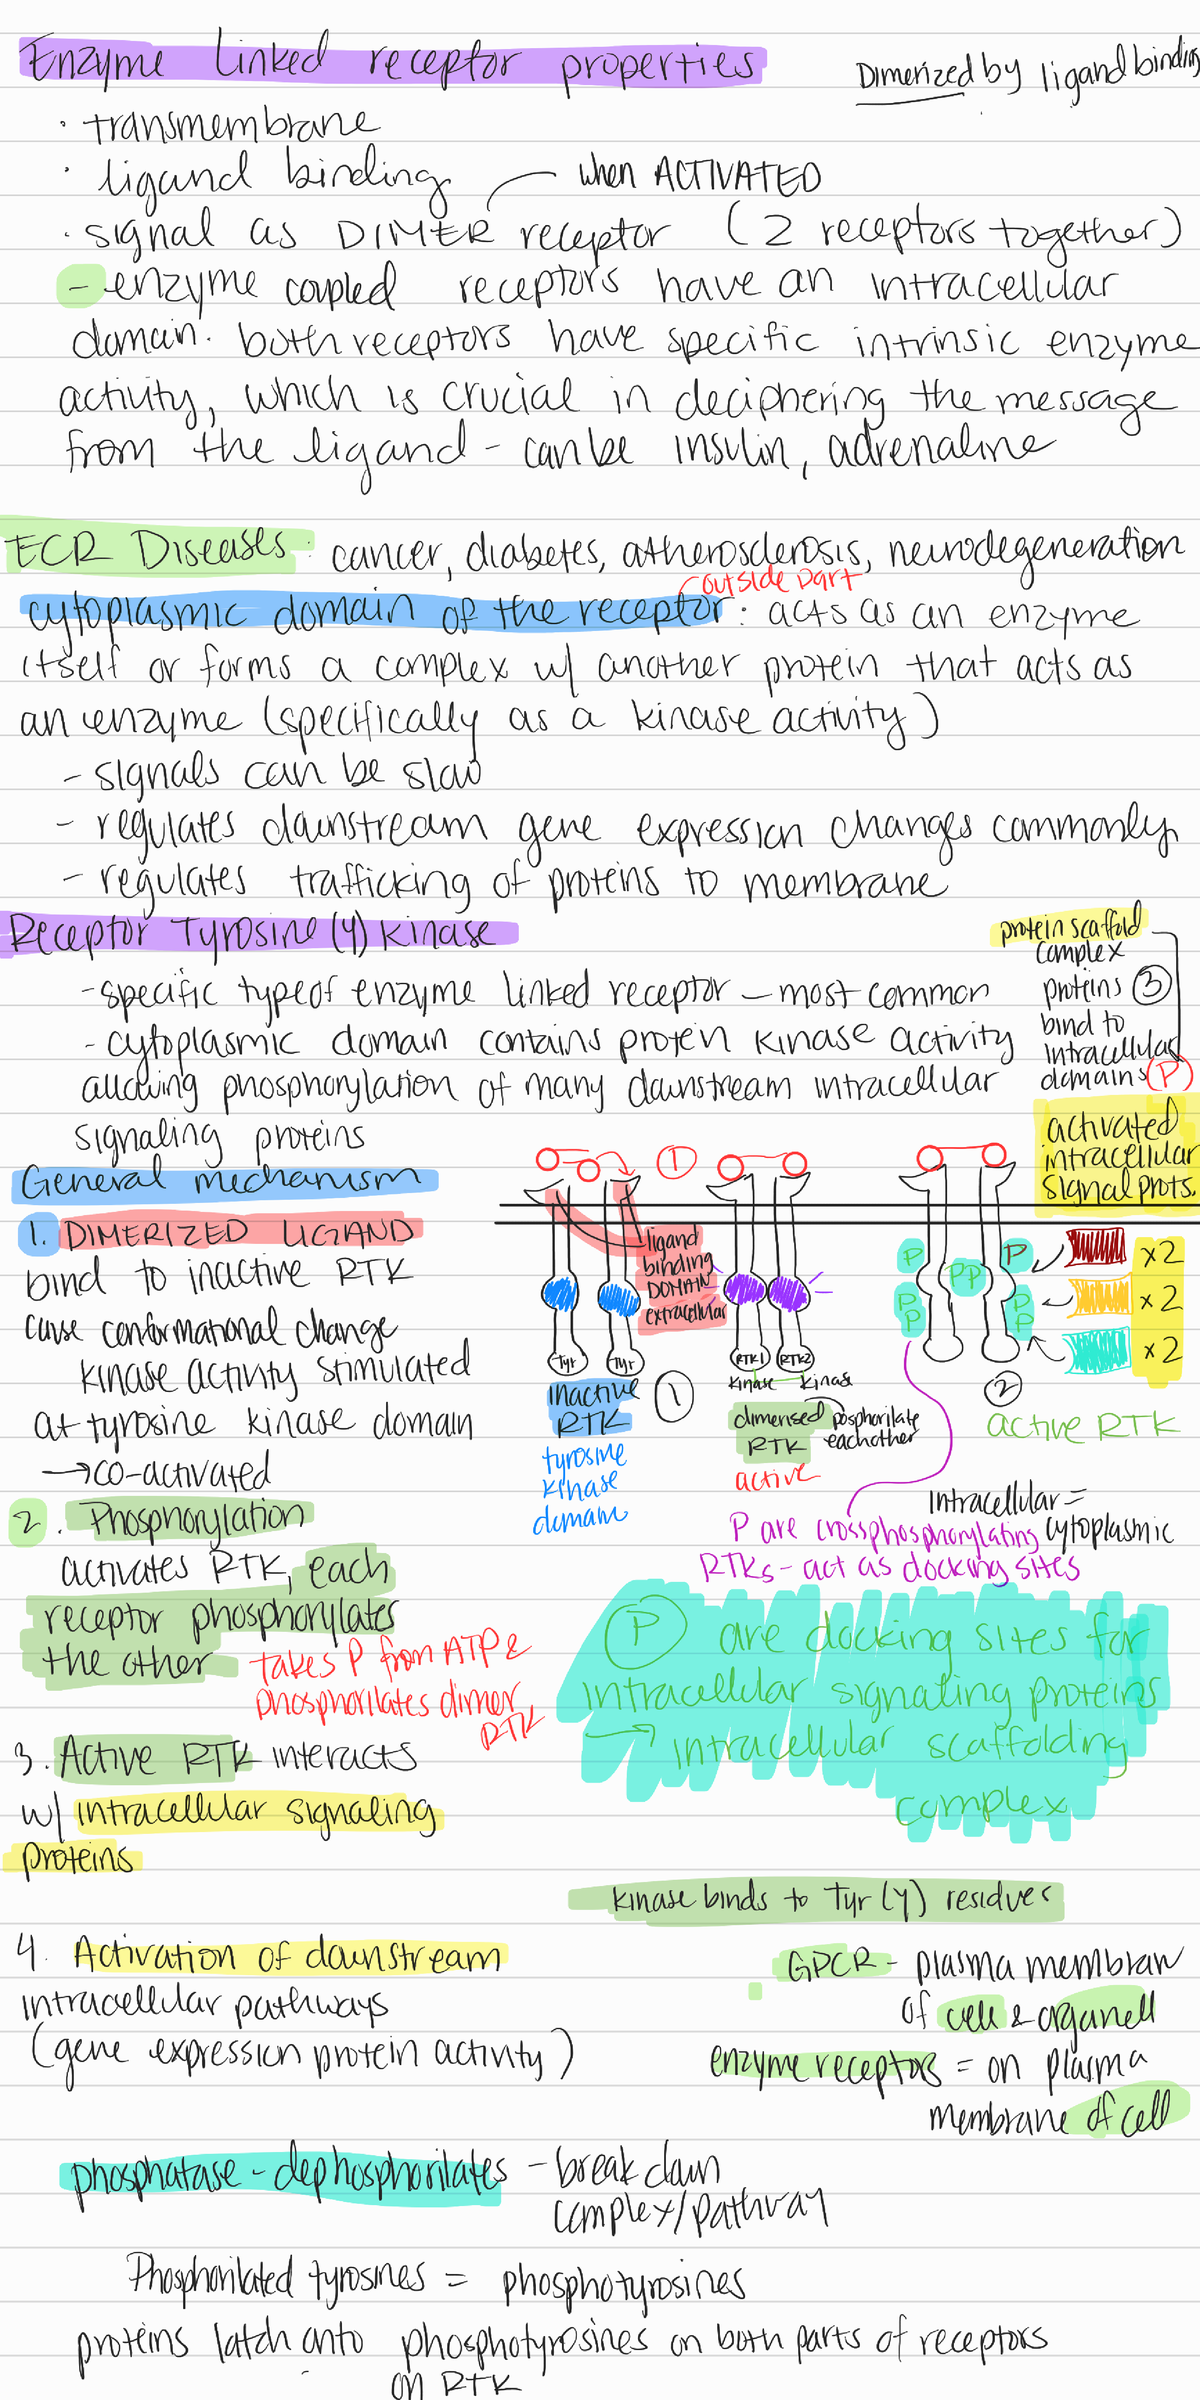 Enzyme Linked receptor properties
Dimerized by ligand binding
· transmembrane
· ligand binding
when ACTIVATED
· signal as DIMER receptor (2 receptors together)
- enzyme coupled receptors have an intracellular
domain. both receptors have specific intrinsic enzyme
activity, which is crucial in deciphering the message
from the ligand - can be insulin, adrenaline
ECR Diseases: cancer, diabetes, atherosclerosis, neurodegeneration
outside part
cytoplasmic domain of the receptor: acts as an enzyme
itself or forms a complex w/ another protein that acts as
an enzyme (specifically as a kinase activity)
- signals can be slow
- regulates downstream gene expression changes commonly
- regulates trafficking of proteins to membrane
Receptor Tyrosine (Y) Kinase
- specific type of enzyme linked receptor - most common
- cytoplasmic domain contains protein kinase activity
allowing phosphorylation of many downstream intracellular
signaling proteins
protein scaffold
complex
proteins ③
bind to
intracellular
domains (P)
activated
intracellular
signal prots.
General mechanism
1. DIMERIZED LIGAND
bind to inactive RTK
cause conformational change
kinase activity stimulated
at tyrosine kinase domain
→ co-activated
①
ligand
binding
DOMAIN
extracellular
Tyr Tyr
inactive
RTK
①
tyrosine
kinase
domain
RTK1 RTK2
kinase kinase
dimerised posphorilate
RTK eachother
active
P P
P P P P
P P
x2
x2
x2
②
active RTK
intracellular =
cytoplasmic
P are crossphosphorylating
RTKs - act as docking sites
2. Phosphorylation
activates RTK, each
receptor phosphorylates
the other
takes P from ATP &
phosphorilates dimer
RTK
(P) are docking sites for
intracellular signaling proteins
→ intracellular scaffolding
complex
3. Active RTK interacts
w/ intracellular signaling
proteins
kinase binds to Tyr (Y) residues
4. Activation of downstream
intracellular pathways
(gene expression protein activity)
GPCR - plasma membran
of cell & organell
enzyme receptors = on plasma
membrane of cell
phosphatase - dephosphorilates - break down
complex/pathway
Phosphorilated tyrosines = phosphotyrosines
proteins latch onto phosphotyrosines on both parts of receptors
on RTK